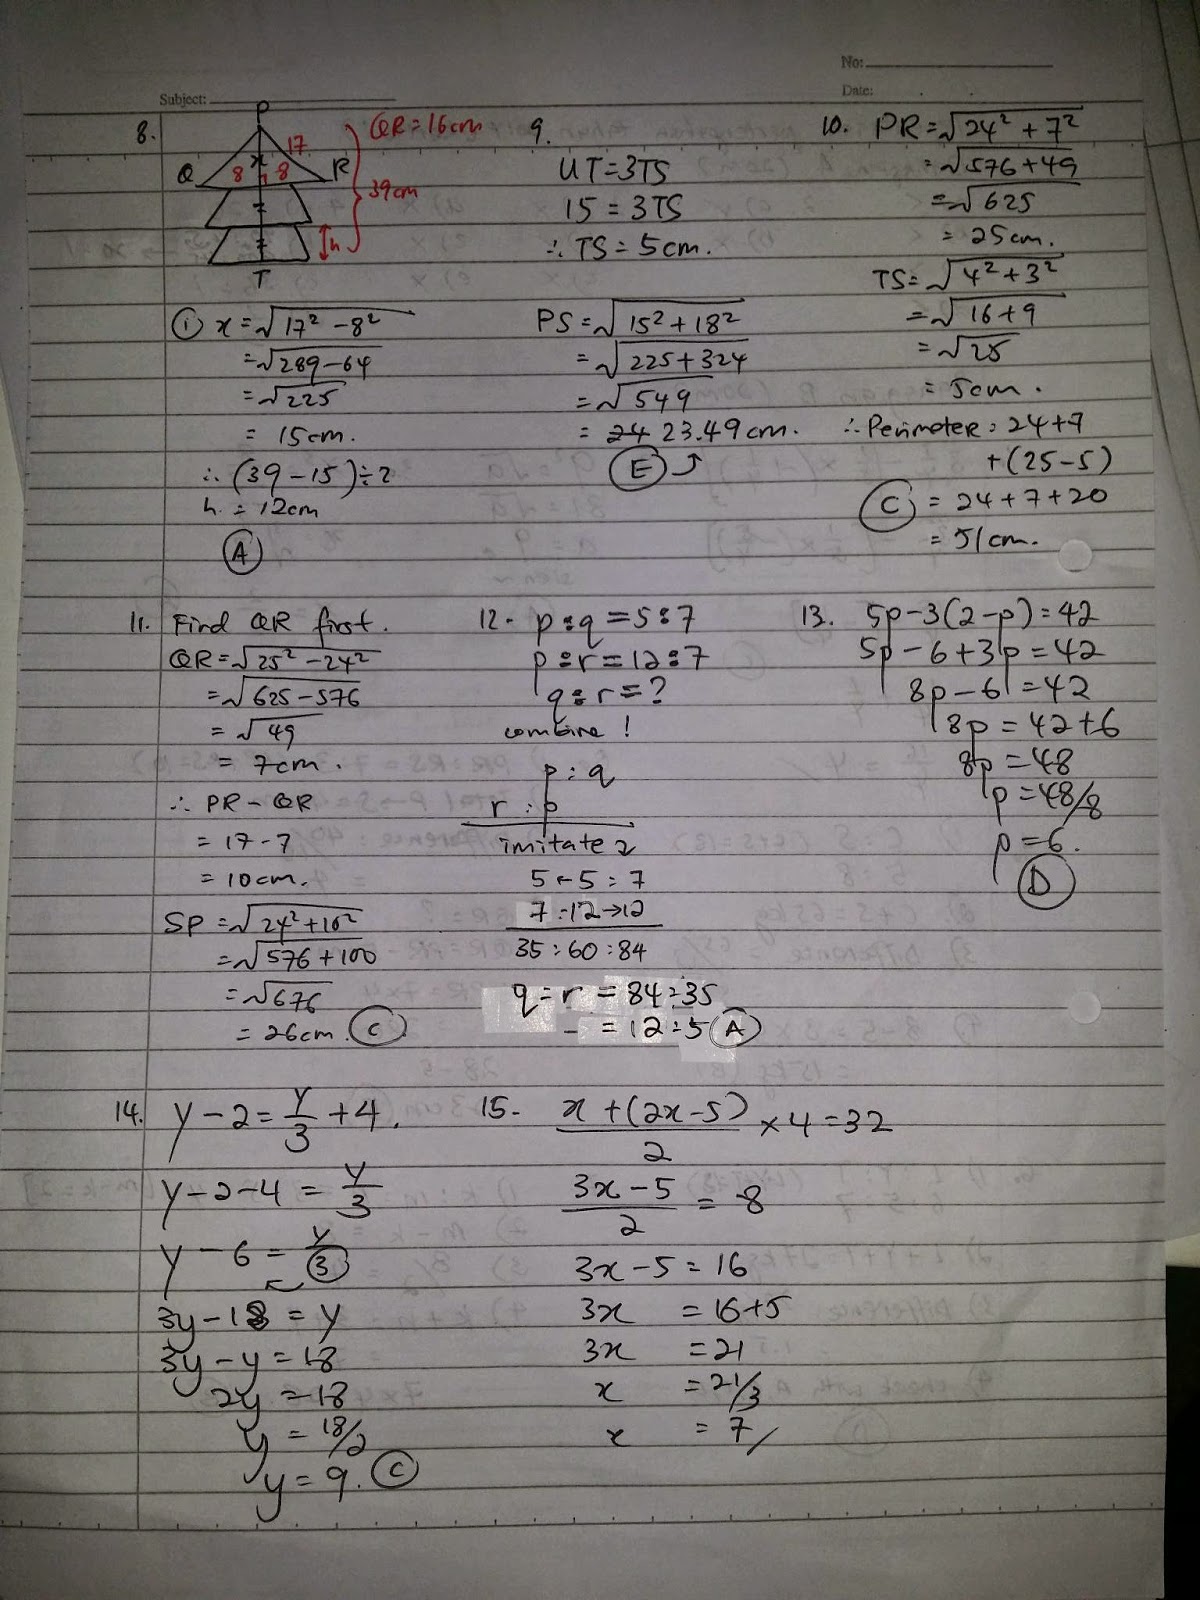 No:
Subject:
Date:
8.
P
QR = 16cm
17
x
Q
8
8
R
39cm
h
T
① x = √17² - 8²
= √289-64
= √225
= 15cm.
∴ (39-15) ÷ 2
h. = 12cm
Ⓐ
9.
UT = 3TS
15 = 3TS
∴ TS = 5cm.
PS = √15² + 18²
= √225+324
= √549
= 24 23.49cm.
Ⓔ
10. PR = √24² + 7²
= √576+49
= √625
= 25cm.
TS = √4² + 3²
= √16+9
= √25
= 5cm.
∴ Perimeter = 24+7
+ (25-5)
Ⓒ = 24+7+20
= 51cm.
11. Find QR first.
QR = √25² - 24²
= √625-576
= √49
= 7cm.
∴ PR - QR
= 17-7
= 10cm.
SP = √24²+10²
= √576+100
= √676
= 26cm. Ⓒ
12. p:q = 5:7
p:r = 12:7
q:r = ?
combine!
p:q
r:p
imitate 2
5 ← 5 : 7
7 : 12 → 12
35 : 60 : 84
q:r = 84:35
= 12:5 Ⓐ
13. 5p-3(2-p) = 42
5p-6+3p = 42
8p-6 = 42
8p = 42+6
8p = 48
p = 48/8
p = 6.
Ⓓ
14. y-2 = y/3 + 4.
y-2-4 = y/3
y-6 = y/3
3y-18 = y
3y-y = 18
2y = 18
y = 18/2
y = 9. Ⓒ
15. x+(2x-5)/2 × 4 = 32
3x-5/2 = 8
3x-5 = 16
3x = 16+5
3x = 21
x = 21/3
x = 7/